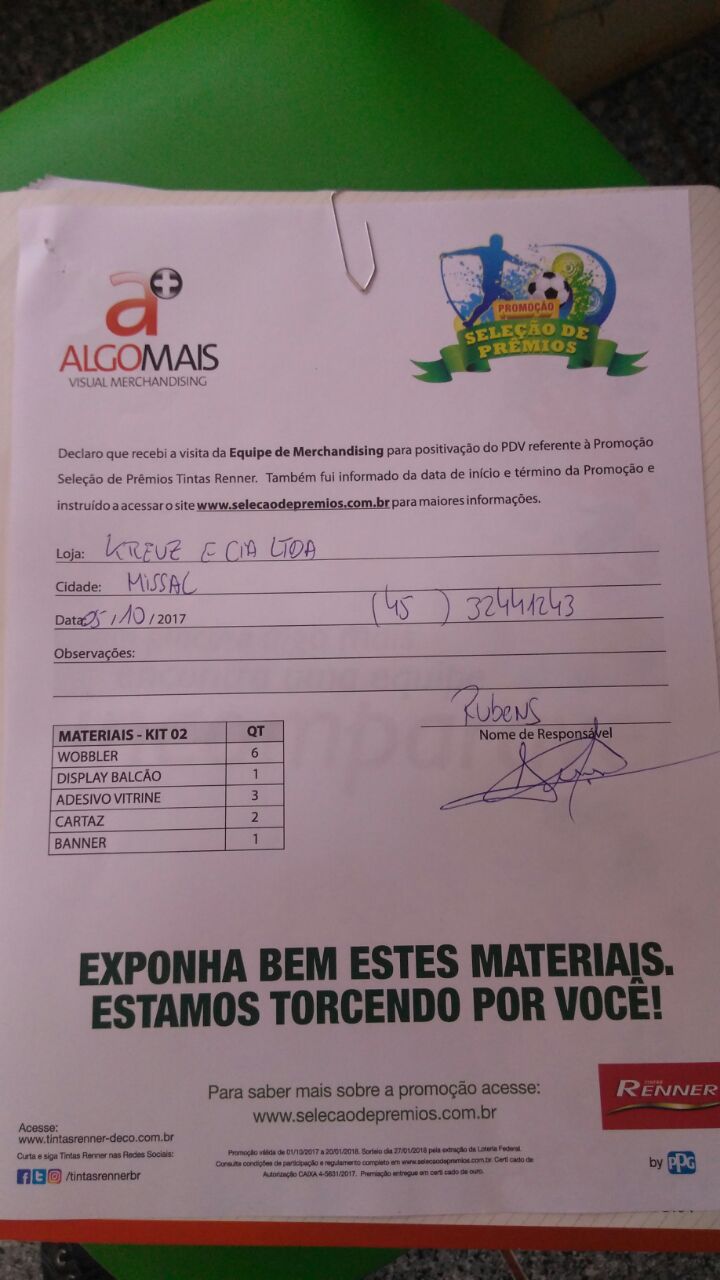 a+
ALGOMAIS
VISUAL MERCHANDISING
PROMOÇÃO
SELEÇÃO DE
PRÊMIOS
Declaro que recebi a visita da Equipe de Merchandising para positivação do PDV referente à Promoção
Seleção de Prêmios Tintas Renner. Também fui informado da data de início e término da Promoção e
instruído a acessar o site www.selecaodepremios.com.br para maiores informações.
Loja: KREUZ E CIA LTDA
Cidade: MISSAL
Data: 05 / 10 / 2017 (45) 32441243
Observações:
Rubens
Nome de Responsável
MATERIAIS - KIT 02 QT
WOBBLER 6
DISPLAY BALCÃO 1
ADESIVO VITRINE 3
CARTAZ 2
BANNER 1
EXPONHA BEM ESTES MATERIAIS.
ESTAMOS TORCENDO POR VOCÊ!
Para saber mais sobre a promoção acesse:
www.selecaodepremios.com.br
TINTAS
RENNER
by PPG
Acesse:
www.tintasrenner-deco.com.br
Curta e siga Tintas Renner nas Redes Sociais:
/tintasrennerbr
Promoção válida de 01/10/2017 a 20/01/2018. Sorteio dia 27/01/2018 pela extração da Loteria Federal.
Consulte condições de participação e regulamento completo em www.selecaodepremios.com.br. Certificado de
Autorização CAIXA 4-5631/2017. Premiação entregue em certificado de ouro.